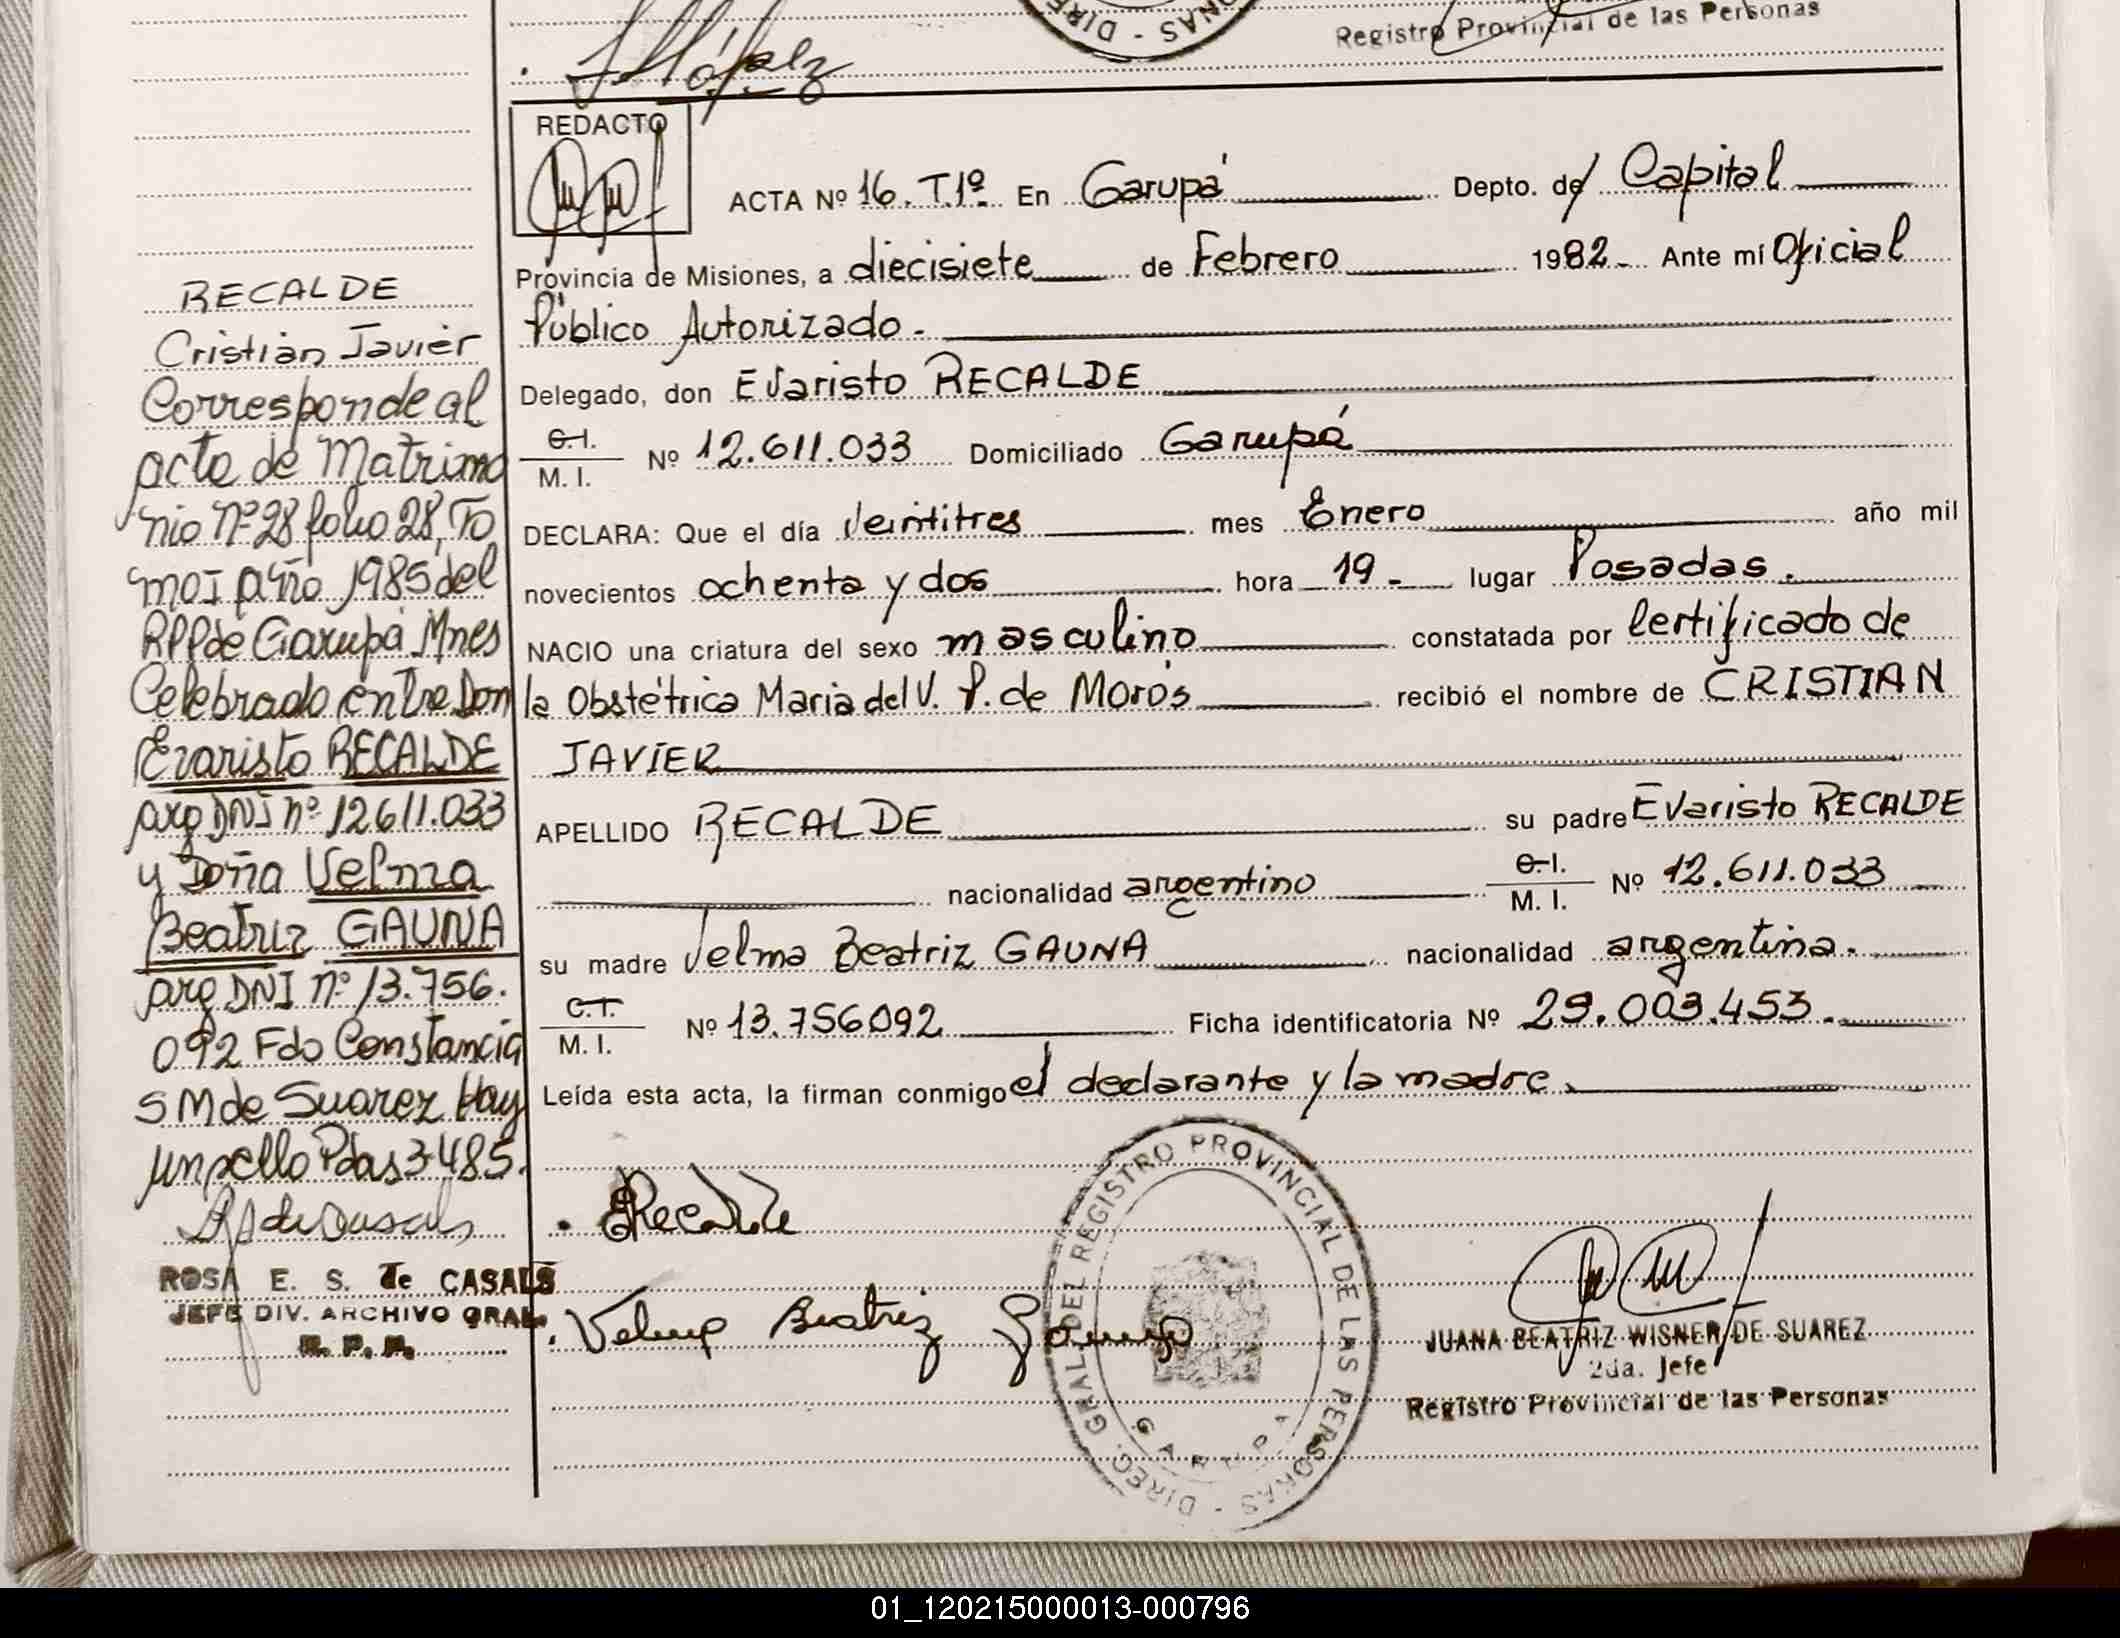 Registro Provincial de las Personas
DIRE
ONAS -
López
REDACTO
ACTA Nº 16. T.1º. En Garupá Depto. de Capital
Provincia de Misiones, a diecisiete de Febrero 1982. Ante mí Oficial
Público Autorizado.
Delegado, don Evaristo RECALDE
C.I.
M. I. Nº 12.611.033 Domiciliado Garupá
DECLARA: Que el día Veintitres mes Enero año mil
novecientos ochenta y dos hora 19. lugar Posadas.
NACIO una criatura del sexo masculino constatada por Certificado de
la Obstétrica Maria del V. P. de Morós recibió el nombre de CRISTIAN
JAVIER
APELLIDO RECALDE su padre Evaristo RECALDE
nacionalidad argentino C.I.
M. I. Nº 12.611.033
su madre Velma Beatriz GAUNA nacionalidad argentina.
C.I.
M. I. Nº 13.756092 Ficha identificatoria Nº 29.003.453.
Leída esta acta, la firman conmigo el declarante y la madre.
ERecalde
Velma Beatriz Gauna
DIREC. GRAL DEL REGISTRO PROVINCIAL DE LAS PERSONAS -
GARUPA
JUANA BEATRIZ WISNER DE SUAREZ
2da. Jefe
Registro Provincial de las Personas
RECALDE
Cristián Javier
Corresponde al
acta de Matrimo
nio Nº 28 folio 28, To
mo I año 1985 del
RPP de Garupá Mnes
Celebrado entre Don
Evaristo RECALDE
arg DNI nº 12611.033
y Doña Velma
Beatriz GAUNA
arg DNI nº 13.756.
092 Fdo Constancia
S M de Suarez Hay
un sello Pdas 3-4-85.
ROSA E. S. de CASALS
JEFE DIV. ARCHIVO GRAL.
R. P. P.
01_120215000013-000796